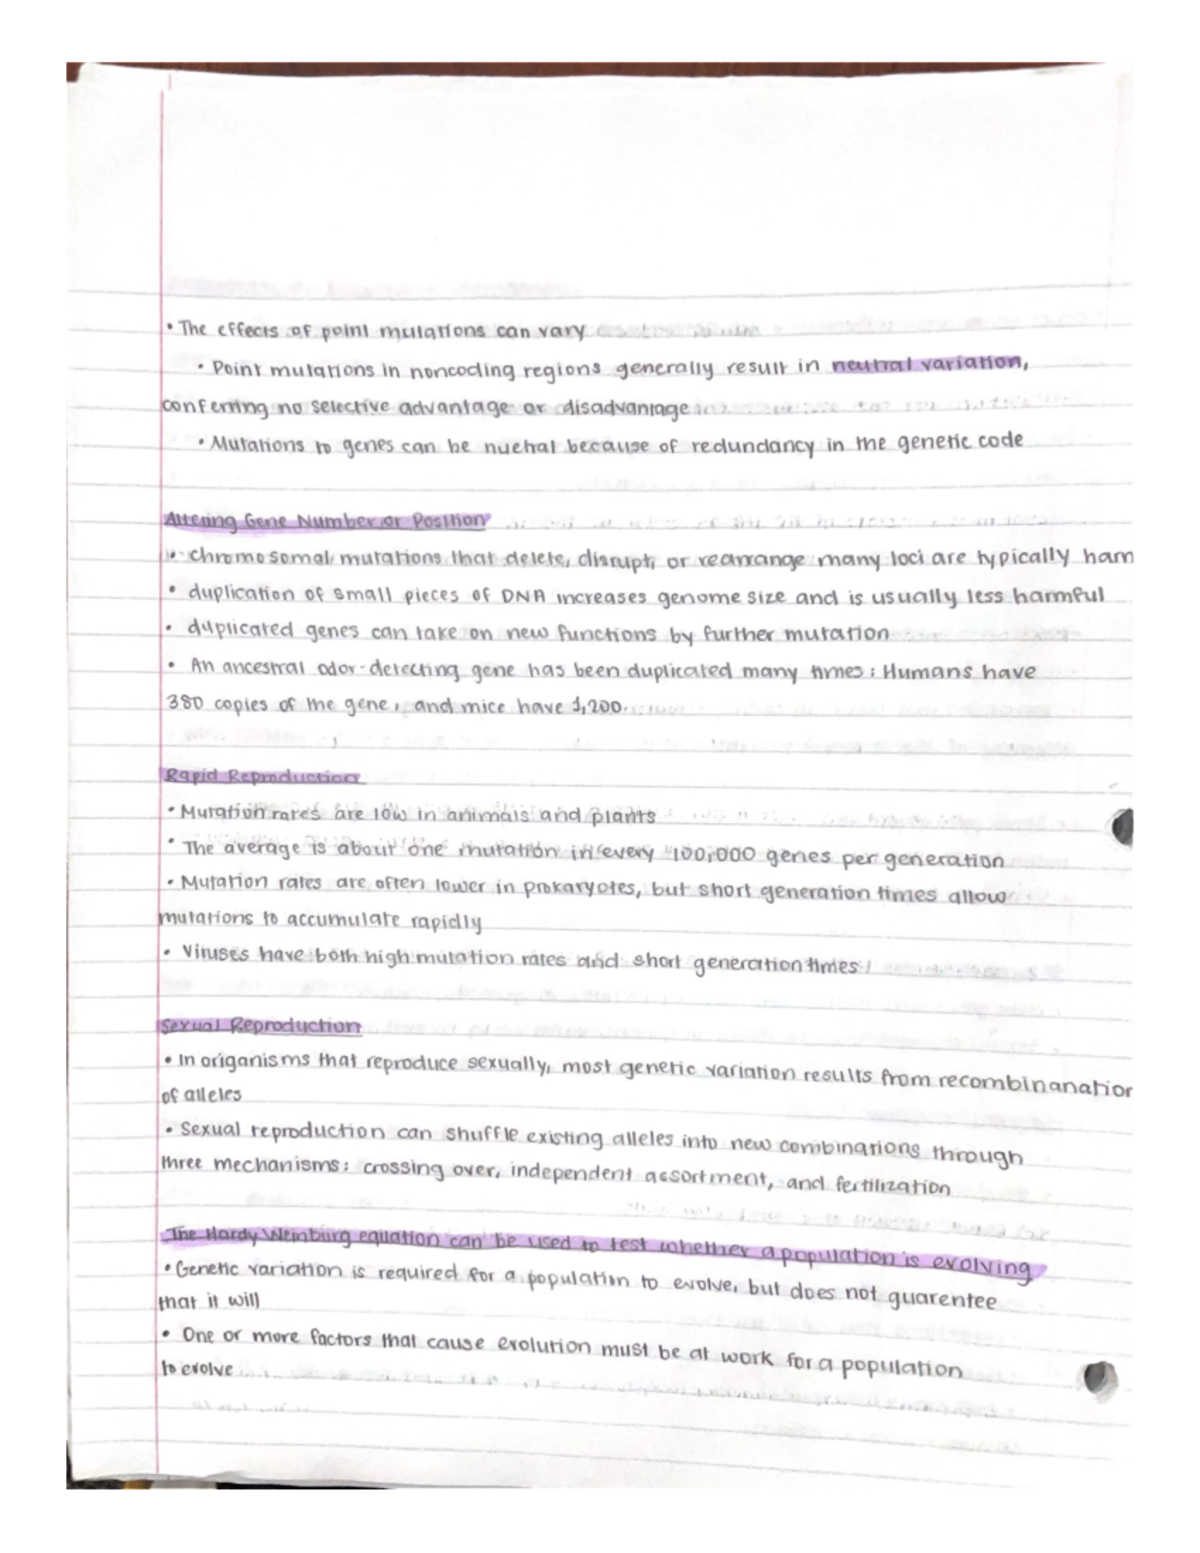 • The effects of point mutations can vary
• Point mutations in noncoding regions generally result in neutral variation,
conferring no selective advantage or disadvantage
• Mutations to genes can be nuetral because of redundancy in the genetic code
Altering Gene Number or Position
• chromosomal mutations that delete, disrupt, or rearrange many loci are typically harm
• duplication of small pieces of DNA increases genome size and is usually less harmful
• duplicated genes can take on new functions by further mutation
• An ancestral odor-detecting gene has been duplicated many times: Humans have
380 copies of the gene, and mice have 1,200.
Rapid Reproduction
• Mutation rates are low in animals and plants
• The average is about one mutation in every 100,000 genes per generation
• Mutation rates are often lower in prokaryotes, but short generation times allow
mutations to accumulate rapidly
• Viruses have both high mutation rates and short generation times
Sexual Reproduction
• In origanisms that reproduce sexually, most genetic variation results from recombinanation
of alleles
• Sexual reproduction can shuffle existing alleles into new combinations through
three mechanisms: crossing over, independent assortment, and fertilization
The Hardy Weinburg equation can be used to test whether a population is evolving
• Genetic variation is required for a population to evolve, but does not guarentee
that it will
• One or more factors that cause evolution must be at work for a population
to evolve